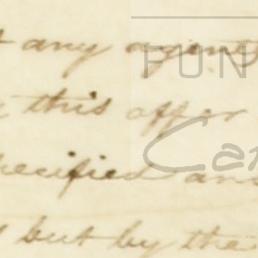 any agent
this offer
specified and
but by the